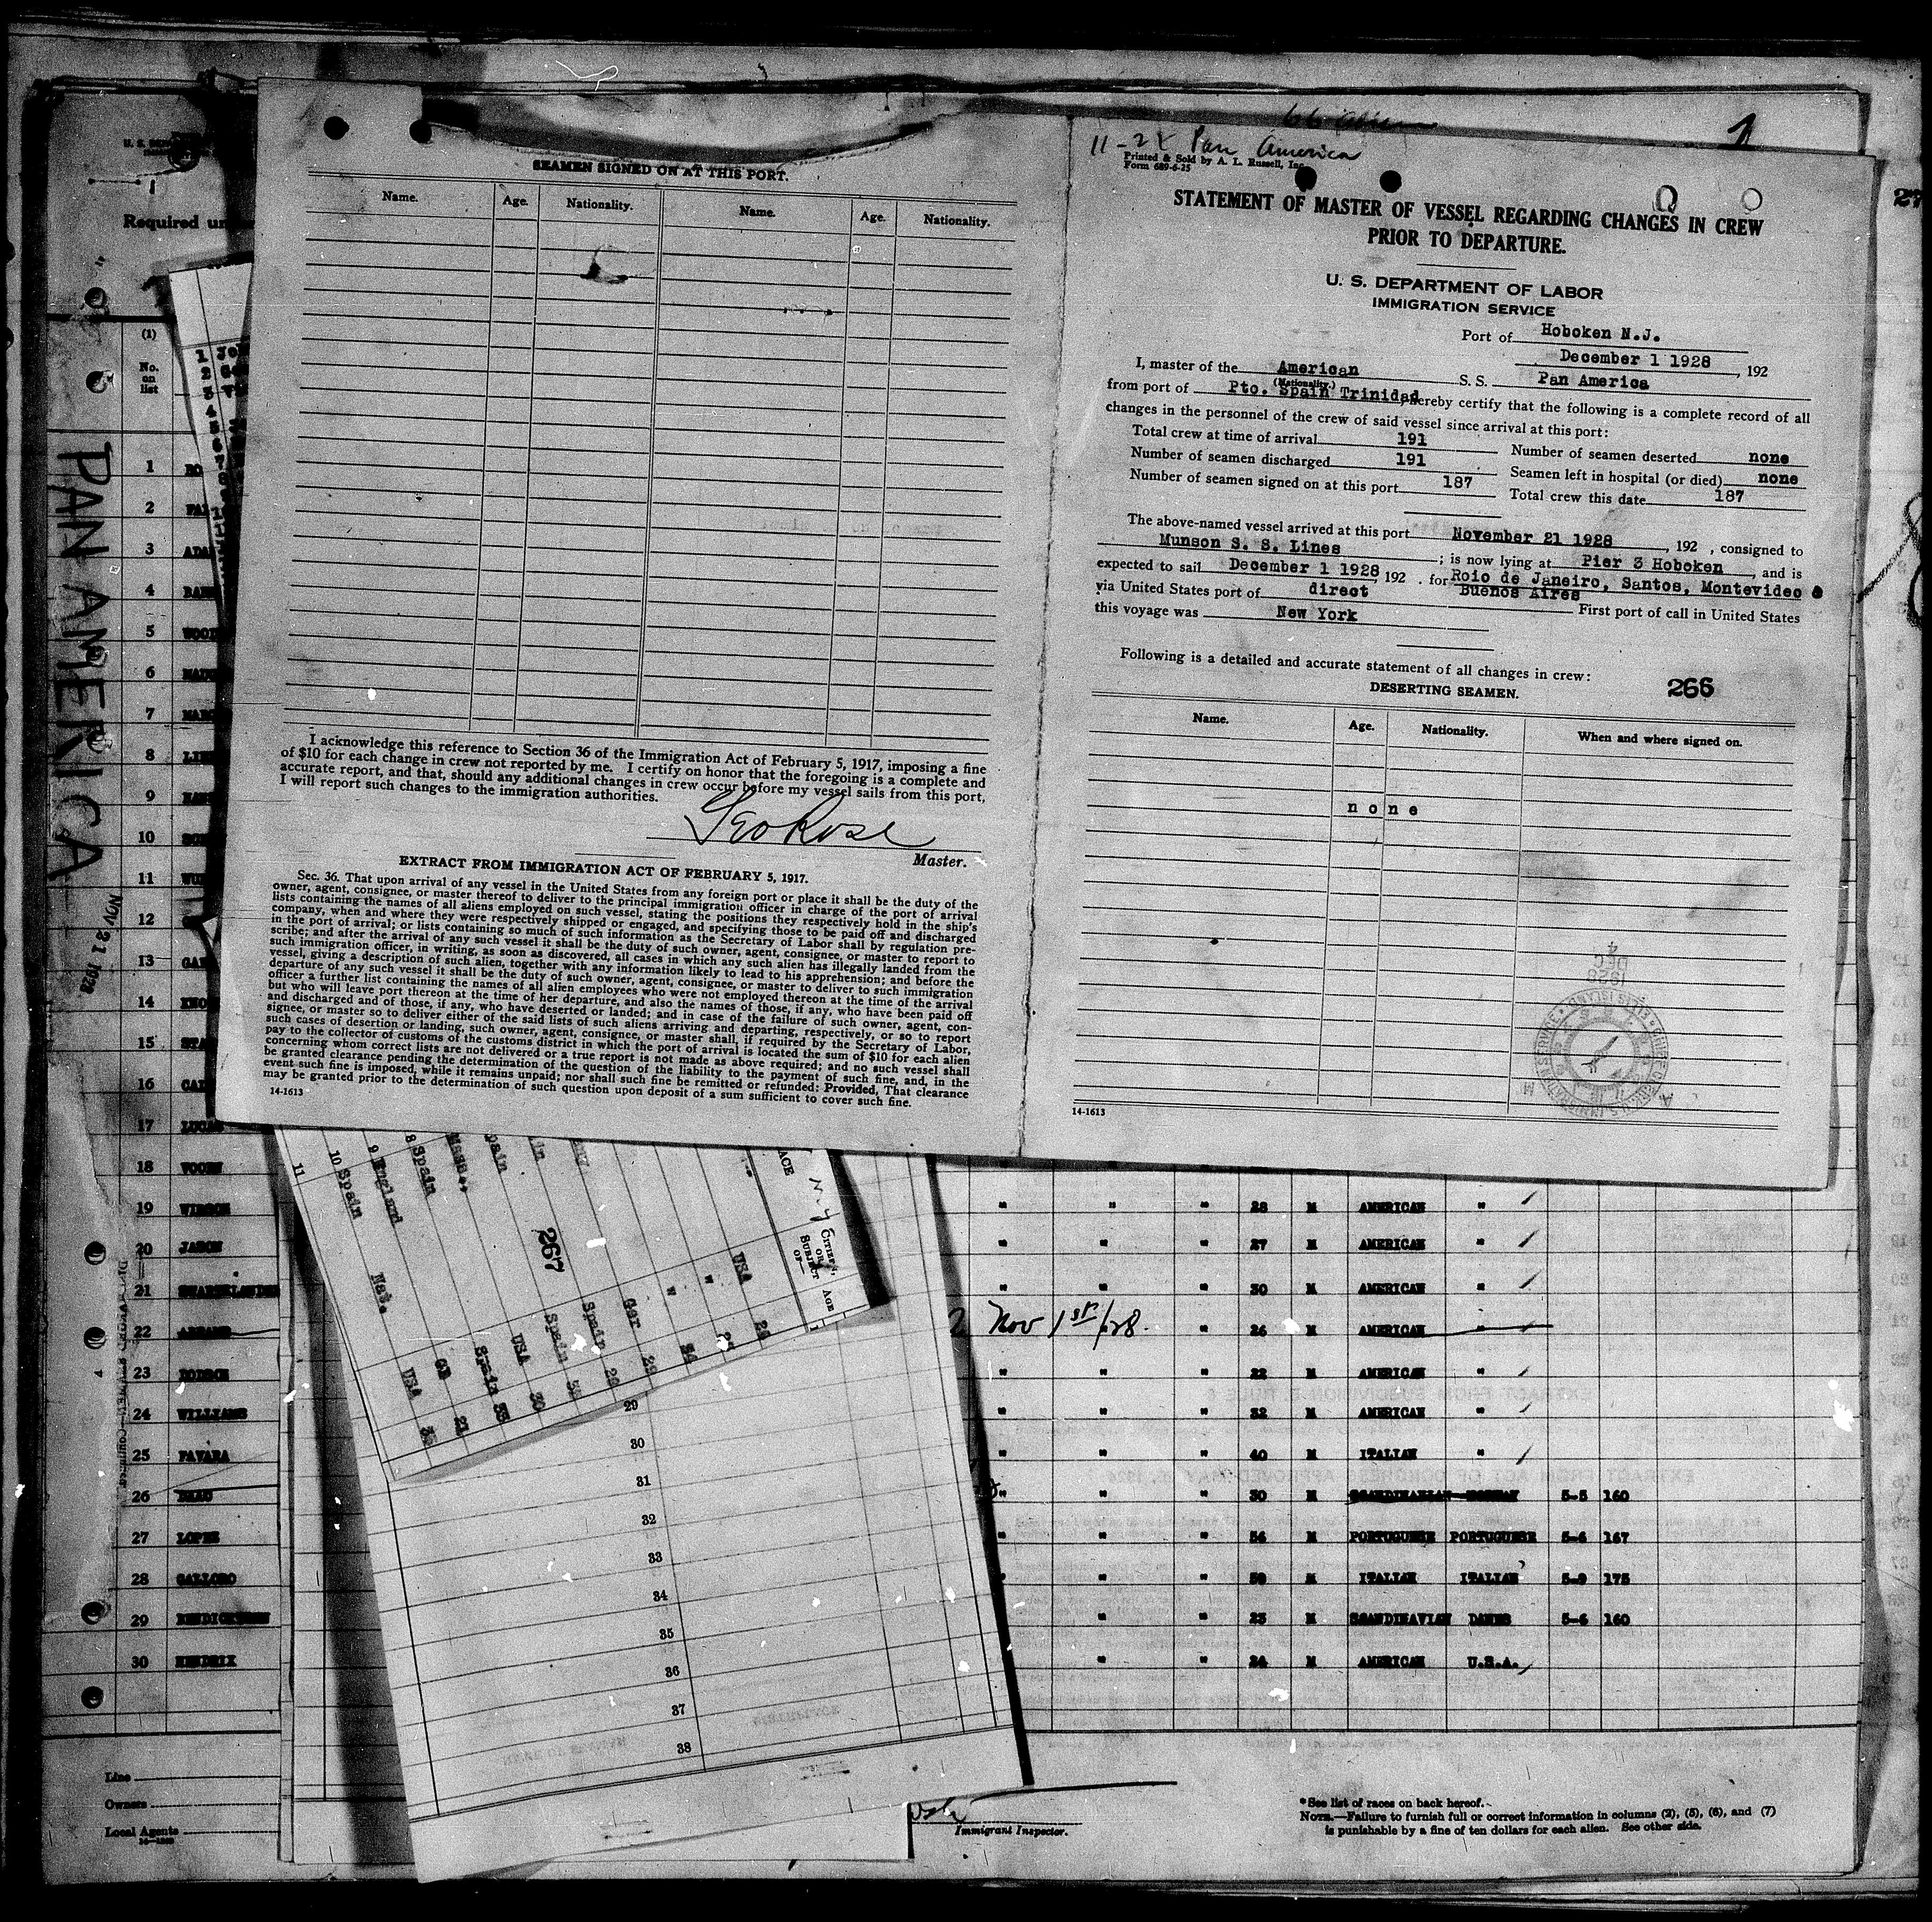 66 alien
1
11-2 X Pan America
Printed & Sold by A. L. Russell, Inc.
Form 689-6-25
STATEMENT OF MASTER OF VESSEL REGARDING CHANGES IN CREW
PRIOR TO DEPARTURE.
U. S. DEPARTMENT OF LABOR
IMMIGRATION SERVICE
Port of Hoboken N.J.
December 1 1928, 192
I, master of the American S. S. Pan America
(Nationality.)
from port of Pto. Spain Trinidad, hereby certify that the following is a complete record of all
changes in the personnel of the crew of said vessel since arrival at this port:
Total crew at time of arrival 191
Number of seamen deserted none
Number of seamen discharged 191
Seamen left in hospital (or died) none
Number of seamen signed on at this port 187
Total crew this date 187
The above-named vessel arrived at this port November 21 1928, 192 , consigned to
Munson S. S. Lines; is now lying at Pier 3 Hoboken, and is
expected to sail December 1 1928, 192 . for Roio de Janeiro, Santos, Montevideo &
Buenos Aires
via United States port of direct First port of call in United States
this voyage was New York
Following is a detailed and accurate statement of all changes in crew:
266
DESERTING SEAMEN.
Name. Age. Nationality. When and where signed on.
none
1928
DEC
4
14-1613
SEAMEN SIGNED ON AT THIS PORT.
Name. Age. Nationality. Name. Age. Nationality.
I acknowledge this reference to Section 36 of the Immigration Act of February 5, 1917, imposing a fine
of $10 for each change in crew not reported by me. I certify on honor that the foregoing is a complete and
accurate report, and that, should any additional changes in crew occur before my vessel sails from this port,
I will report such changes to the immigration authorities.
Geo Rose
Master.
EXTRACT FROM IMMIGRATION ACT OF FEBRUARY 5, 1917.
Sec. 36. That upon arrival of any vessel in the United States from any foreign port or place it shall be the duty of the
owner, agent, consignee, or master thereof to deliver to the principal immigration officer in charge of the port of arrival
lists containing the names of all aliens employed on such vessel, stating the positions they respectively hold in the ship's
company, when and where they were respectively shipped or engaged, and specifying those to be paid off and discharged
in the port of arrival; or lists containing so much of such information as the Secretary of Labor shall by regulation pre-
scribe; and after the arrival of any such vessel it shall be the duty of such owner, agent, consignee, or master to report to
such immigration officer, in writing, as soon as discovered, all cases in which any such alien has illegally landed from the
vessel, giving a description of such alien, together with any information likely to lead to his apprehension; and before the
departure of any such vessel it shall be the duty of such owner, agent, consignee, or master to deliver to such immigration
officer a further list containing the names of all alien employees who were not employed thereon at the time of the arrival
but who will leave port thereon at the time of her departure, and also the names of those, if any, who have been paid off
and discharged and of those, if any, who have deserted or landed; and in case of the failure of such owner, agent, con-
signee, or master so to deliver either of the said lists of such aliens arriving and departing, respectively, or so to report
such cases of desertion or landing, such owner, agent, consignee, or master shall, if required by the Secretary of Labor,
pay to the collector of customs of the customs district in which the port of arrival is located the sum of $10 for each alien
concerning whom correct lists are not delivered or a true report is not made as above required; and no such vessel shall
be granted clearance pending the determination of the question of the liability to the payment of such fine, and, in the
event such fine is imposed, while it remains unpaid; nor shall such fine be remitted or refunded: Provided, That clearance
may be granted prior to the determination of such question upon deposit of a sum sufficient to cover such fine.
14-1613
Required un
PAN AMERICA
NOV 21 1928
(1)
No.
on
list
1
2
3 ADA
4
5 WOOD
6
7
8
9
10
11
12
13
14
15
16
17 LUCAS
18
19
20 JASON
21
22 ADAMS
23 DODSON
24 WILLIAMS
25 FAVARA
26
27 LOPEZ
28 GALLORO
29
30 HENDRIX
" " " 28 M AMERICAN "
" " " 27 M AMERICAN "
" " " 30 M AMERICAN "
Nov 1st/28. " 26 M AMERICAN "
" " " 22 M AMERICAN "
" " " 32 M AMERICAN "
" " " 40 M ITALIAN "
" " " 30 M SCANDINAVIAN NORWAY 5-5 160
" " " 56 M PORTUGUESE PORTUGUESE 5-6 167
" " 50 M ITALIAN ITALIAN 5-9 175
" " 23 M SCANDINAVIAN DANES 5-6 160
" " 24 M AMERICAN U.S.A.
11
10 Spain
9 England
8 Spain
Mass.
267
N.Y.
CITIZEN OR SUBJECT OF—
AGE
USA
Ger 29
Spain
Spain
USA 30
Spain
GB 21
USA
29
30
31
32
33
34
35
36
37
38
Line
Owners
Local Agents
Immigrant Inspector.
*See list of races on back hereof.
NOTE.—Failure to furnish full or correct information in columns (2), (5), (6), and (7)
is punishable by a fine of ten dollars for each alien. See other side.